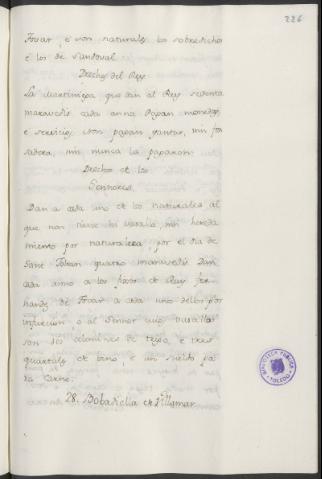 226
Tovar, è son naturales los sobredichos
è los de Sandoval
Drechos del Rey
La martiniega que dan al Rey sesenta
maravedis cada anno Pagan monedas,
è servicios, non pagan yantar, nin fon
sadera, nin nunca la pagaron.
Drechos de los
Sennores
Dan a cada uno de los naturales al
que non tiene hi vasallo, nin hereda
miento por naturaleza, por el dia de
Sant Johan quatro maravedis Dan
cada anno a los fijos de Ruy fer
nandez de Tovar a cada uno dellos por
infurcion, o al Sennor cuio vasallo
son dos celemines de trigo, è tres
quartales de vino, è un sueldo pa
ra carne.
28. Bobadiella de Villamar
BIBLIOTECA PUBLICA
TOLEDO